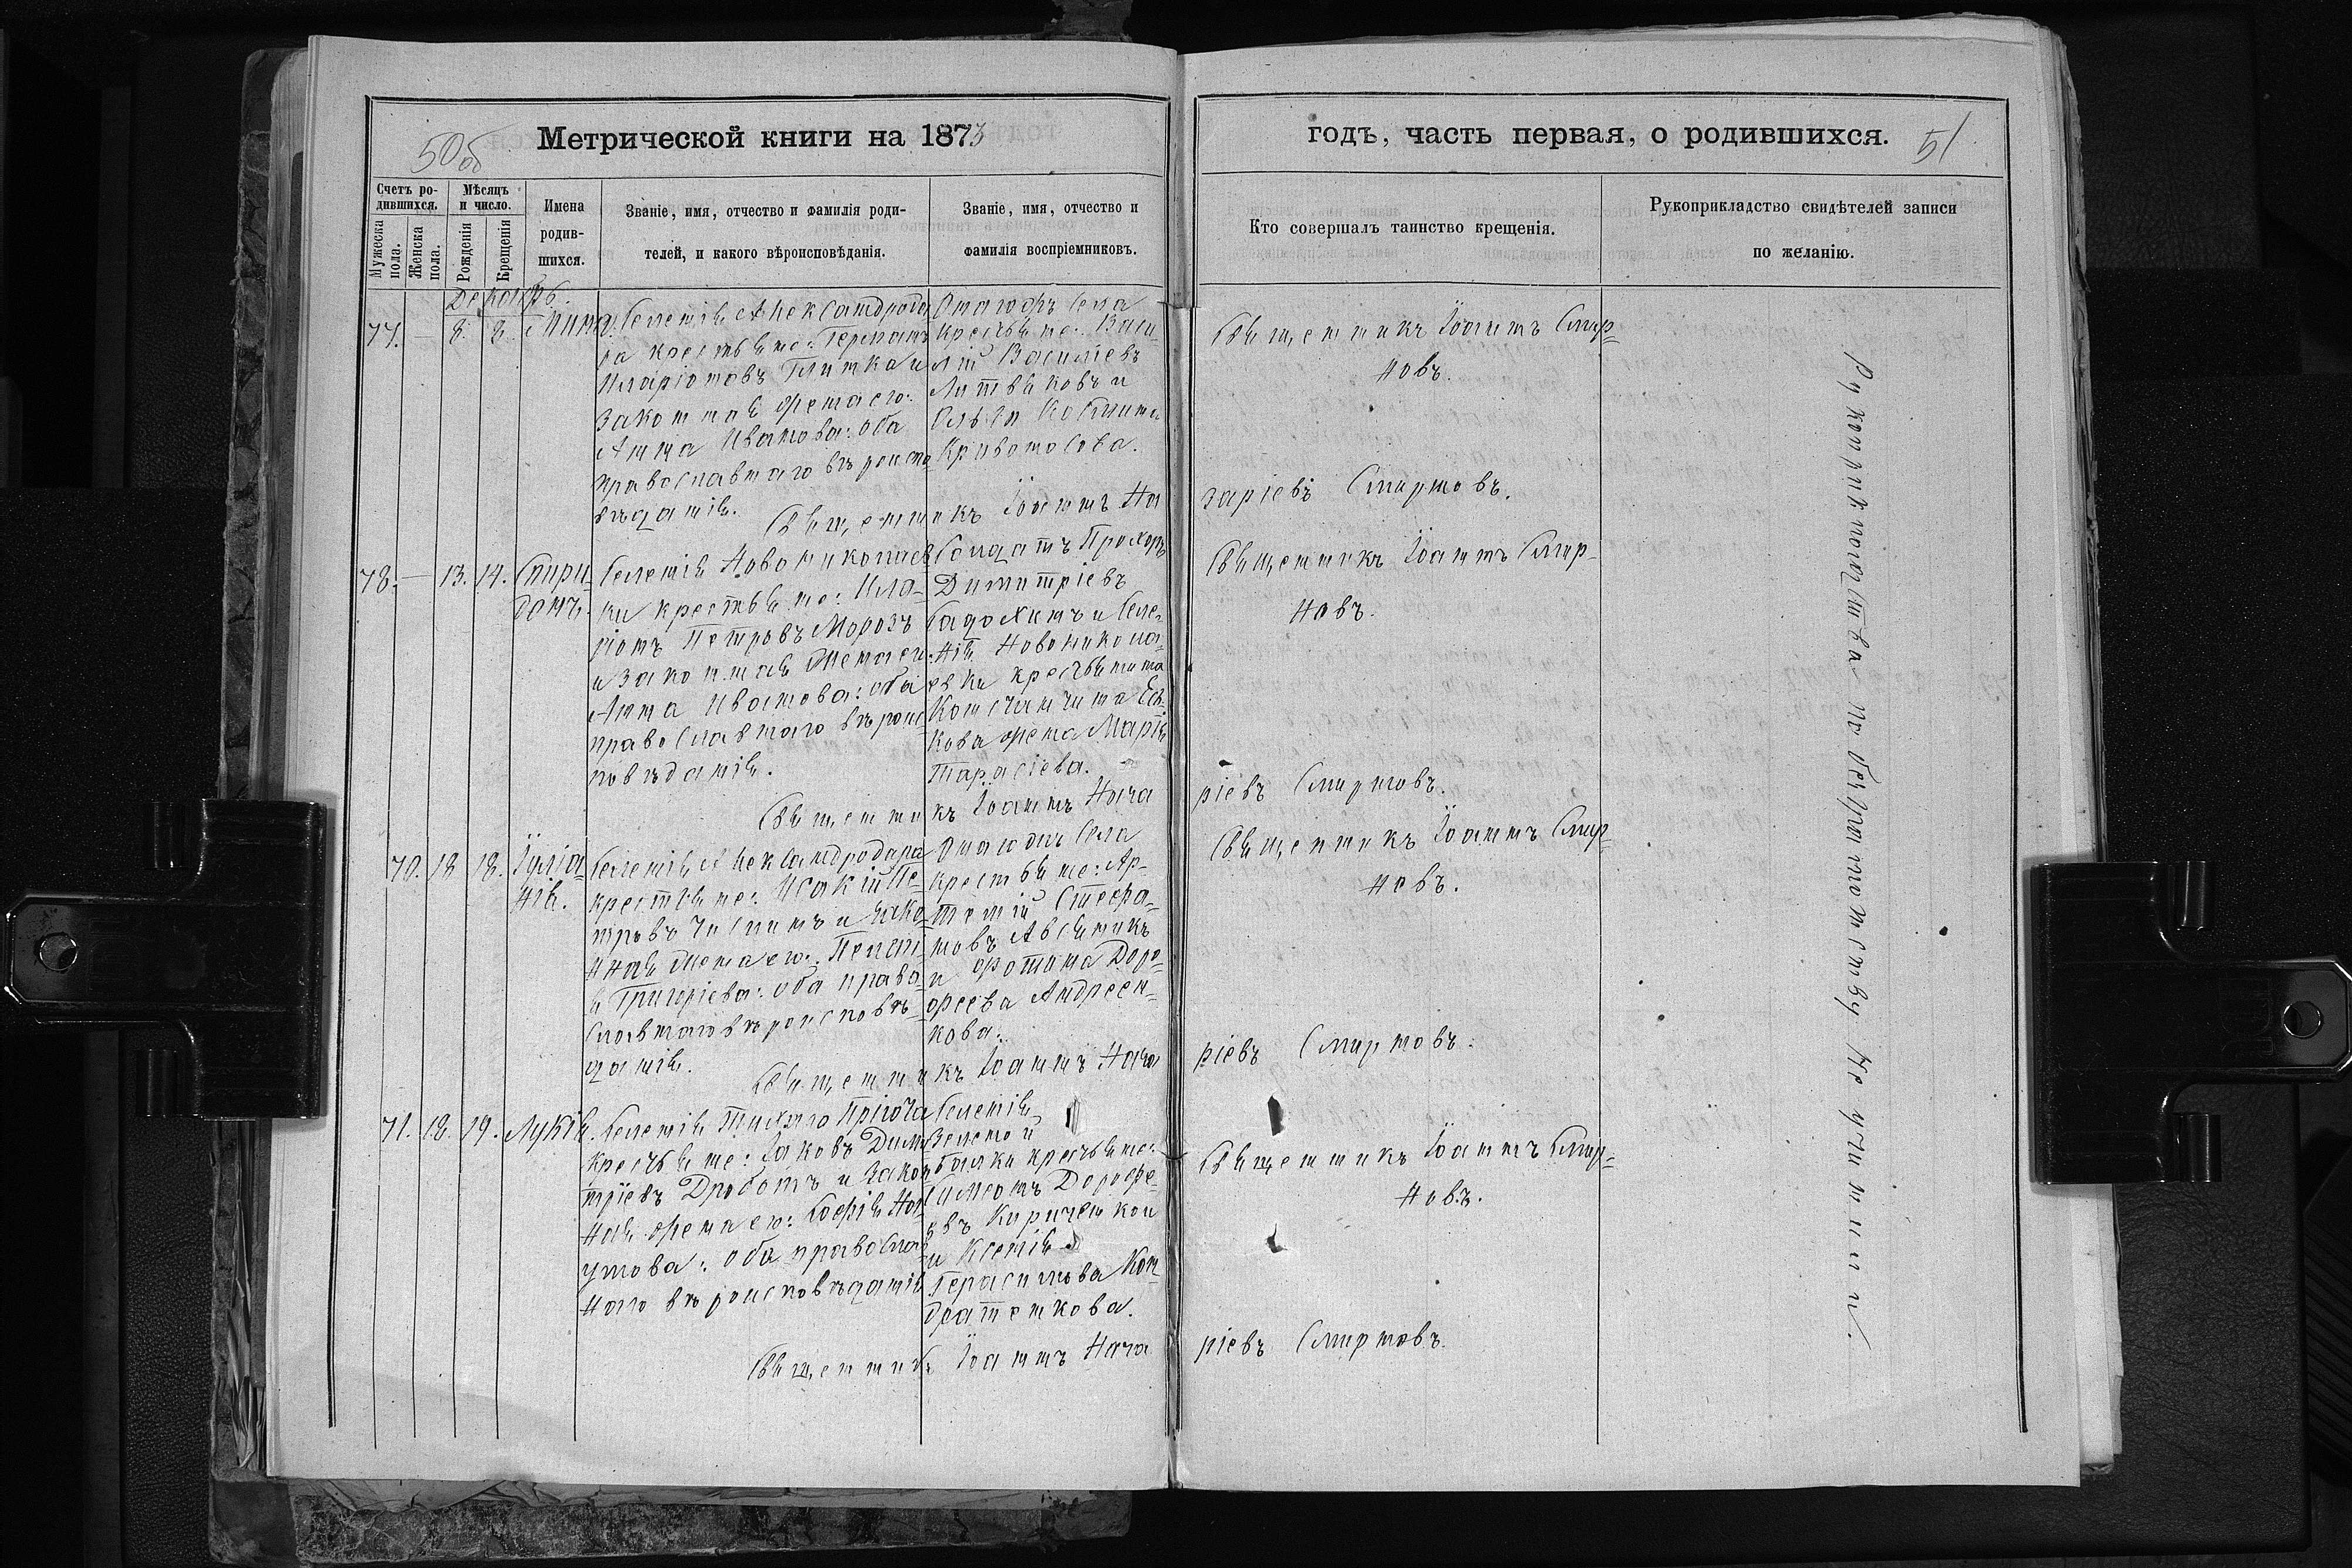 Метрической книги на 1873
50об
годъ, часть первая, о родившихся.
51
Счетъ ро-
дившихся.
Мужеска
пола.
Женска
пола.
Мѣсяцъ
и число.
Рожденія
Крещенія
Имена
родив-
шихся.
Званіе, имя, отчество и фамилія роди-
телей, и какого вѣроисповѣданія.
Званіе, имя, отчество и
фамилія воспріемниковъ.
Кто совершалъ таинство крещенія.
Рукоприкладство свидѣтелей записи
по желанію.
Декабрь.
77. — 8. 8.
Селенія Александрода
ра крестьяне:
Иларіоновъ и
законная жена его:
Анна Иванова: оба
православнаго вѣроиспо
вѣданія.
села
крестьяне: Васи-
лій Василіевъ
Литвяковъ и
Кривоносова.
Священникъ Іоаннъ Смир-
новъ.
Священникъ Іоаннъ На
заріевъ Смирновъ.
78. — 13. 14. Спири-
донъ.
Селенія Новониколаев
ки крестьяне: Ила-
ріонъ Петровъ Морозъ
и законная жена его:
Анна Иванова: оба
православнаго вѣроис
повѣданія.
Солдатъ Прохоръ
Димитріевъ
и селе-
нія Новоникола-
евки крестьянина
Константина
кова жена Марія
Тарасіева.
Священникъ Іоаннъ Смир-
новъ.
Священникъ Іоаннъ Наза
ріевъ Смирновъ.
70. 18 18. Іуліа-
нія.
Селенія Александродара
крестьяне: Исакій Пе-
тровъ и зако-
нная жена его:
Григоріева: оба право-
славнаго вѣроисповѣ-
данія.
села
крестьяне: Ар-
темій Стефа-
новъ Авсяникъ
и Фотина Доро-
феева Андреен-
кова.
Священникъ Іоаннъ Смир-
новъ.
Священникъ Іоаннъ Наза
ріевъ Смирновъ.
71. 18. 19. Лукія.
Селенія Тихаго Пріюта
крестьяне: Іаковъ Дими
тріевъ Дроботъ и закон
ная жена его: Софія На
умова: оба православ
наго вѣроисповѣданія
Селенія
Зеленой
балки крестьяне:
Симеонъ Дорофе-
евъ
и Ксенія
Герасимова Кон-
дратенкова.
Священникъ Іоаннъ Смир-
новъ.
Священникъ Іоаннъ Наза
ріевъ Смирновъ.
Рукоприкладства по безграмотству не учинили.